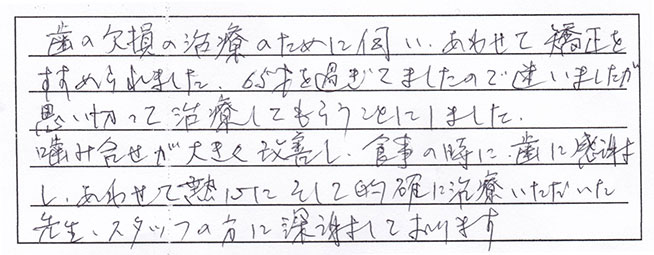 歯の欠損の治療のために伺い、あわせて矯正を
すすめられました。65才を過ぎてましたので迷いましたが
思い切って治療してもらうことにしました。
噛み合せが大きく改善し、食事の時に、歯に感謝
し、あわせて熱心にそして的確に治療いただいた
先生、スタッフの方に深謝しております